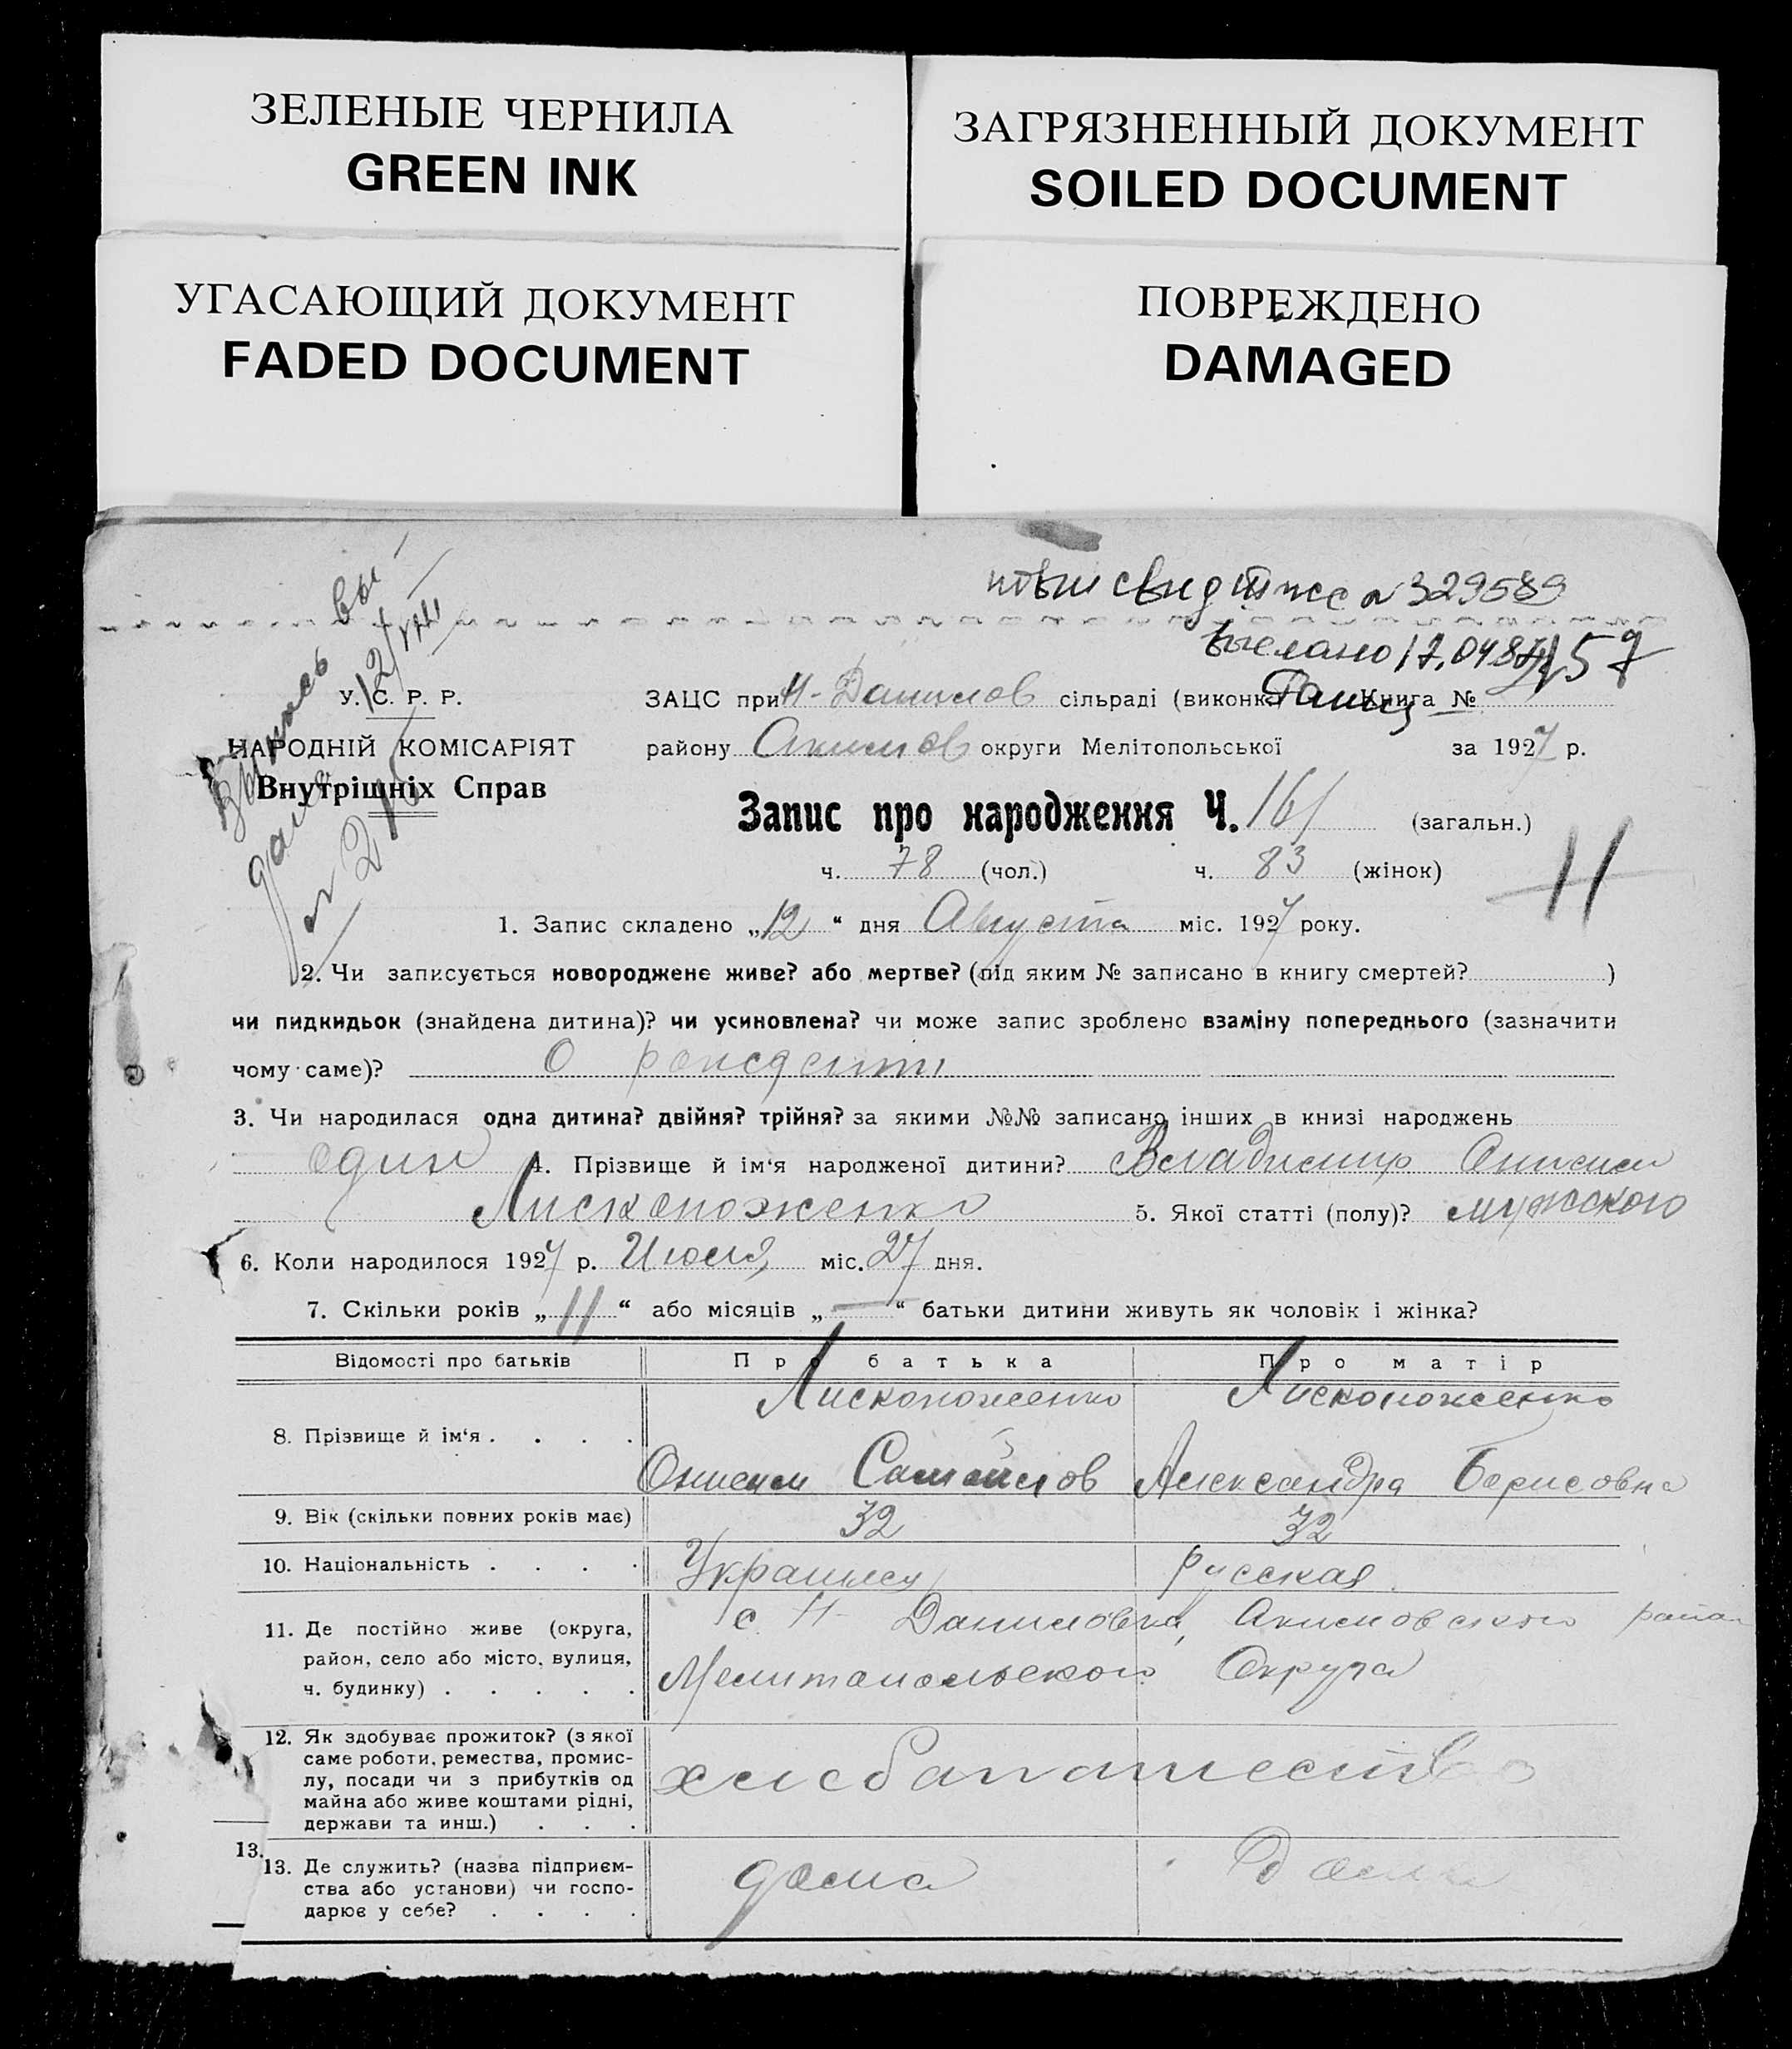 ЗЕЛЕНЫЕ ЧЕРНИЛА
GREEN INK
ЗАГРЯЗНЕННЫЙ ДОКУМЕНТ
SOILED DOCUMENT
УГАСАЮЩИЙ ДОКУМЕНТ
FADED DOCUMENT
ПОВРЕЖДЕНО
DAMAGED
329589
57
У. С. Р. Р.
НАРОДНІЙ КОМІСАРІЯТ
Внутрішніх Справ
ЗАЦС при Н-Данилов сільраді (виконк.) Книга №
району Акимов округи Мелітопольської за 1927 р.
Запис про народження Ч. 161 (загальн.)
ч. 78 (чол.) ч. 83 (жінок)
11
1. Запис складено „12“ дня Августа міс. 1927 року.
2. Чи записується новороджене живе? або мертве? (під яким № записано в книгу смертей? )
чи пидкидьок (знайдена дитина)? чи усиновлена? чи може запис зроблено взаміну попереднього (зазначити
чому саме)? О рождении
3. Чи народилася одна дитина? двійня? трійня? за якими №№ записано інших в книзі народжень
один 4. Прізвище й ім‘я народженої дитини? Владимир Онисим
Лископоженко 5. Якої статті (полу)? мужского
6. Коли народилося 1927 р. Июля міс. 27 дня.
7. Скільки років „11“ або місяців „—“ батьки дитини живуть як чоловік і жінка?
Відомості про батьків Про батька Про матір
8. Прізвище й ім‘я . . . . Лископоженко Онисим Самойлов Лископоженко Александра Борисовна
9. Вік (скільки повних років має) 32 32
10. Національність . . . . Украинец русская
11. Де постійно живе (округа,
район, село або місто, вулиця,
ч. будинку) . . . . .
с. Н-Даниловка, Акимовского район
Мелитопольского Округа
12. Як здобуває прожиток? (з якої
саме роботи, ремества, промис-
лу, посади чи з прибутків од
майна або живе коштами рідні,
держави та инш.) . . .
хлебапашество
13.
13. Де служить? (назва підприєм-
ства або установи) чи госпо-
дарює у себе? . . . .
дома дома